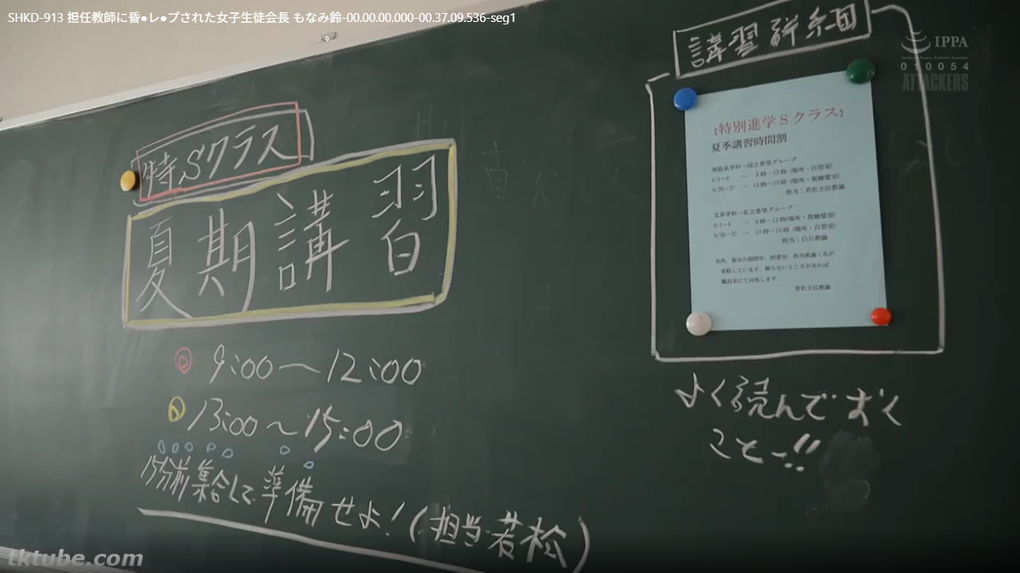 SHKD-913 担任教師に昏●レ●プされた女子生徒会長 もなみ鈴-00.00.00.000-00.37.09.536-seg1
IPPA
010054
ATTACKERS
特Sクラス
夏期講習
9:00〜12:00
13:00〜15:00
15分前集合して準備せよ!(担当若松)
講習詳細
【特別進学Sクラス】
夏季講習時間割
よく読んでおく
こと-!!
tktube.com